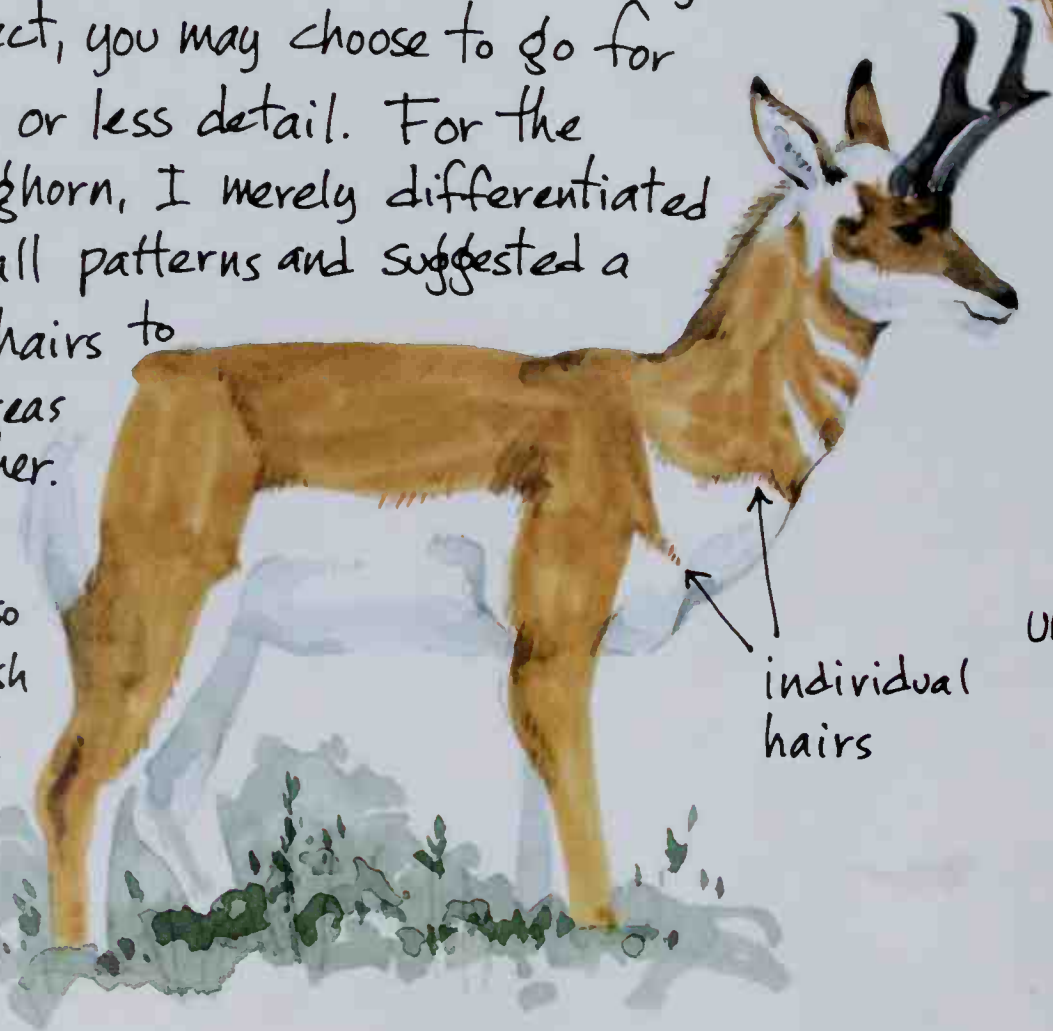 you may choose to go for
or less detail. For the
I merely differentiated
patterns and suggested a
hairs to
individual
hairs